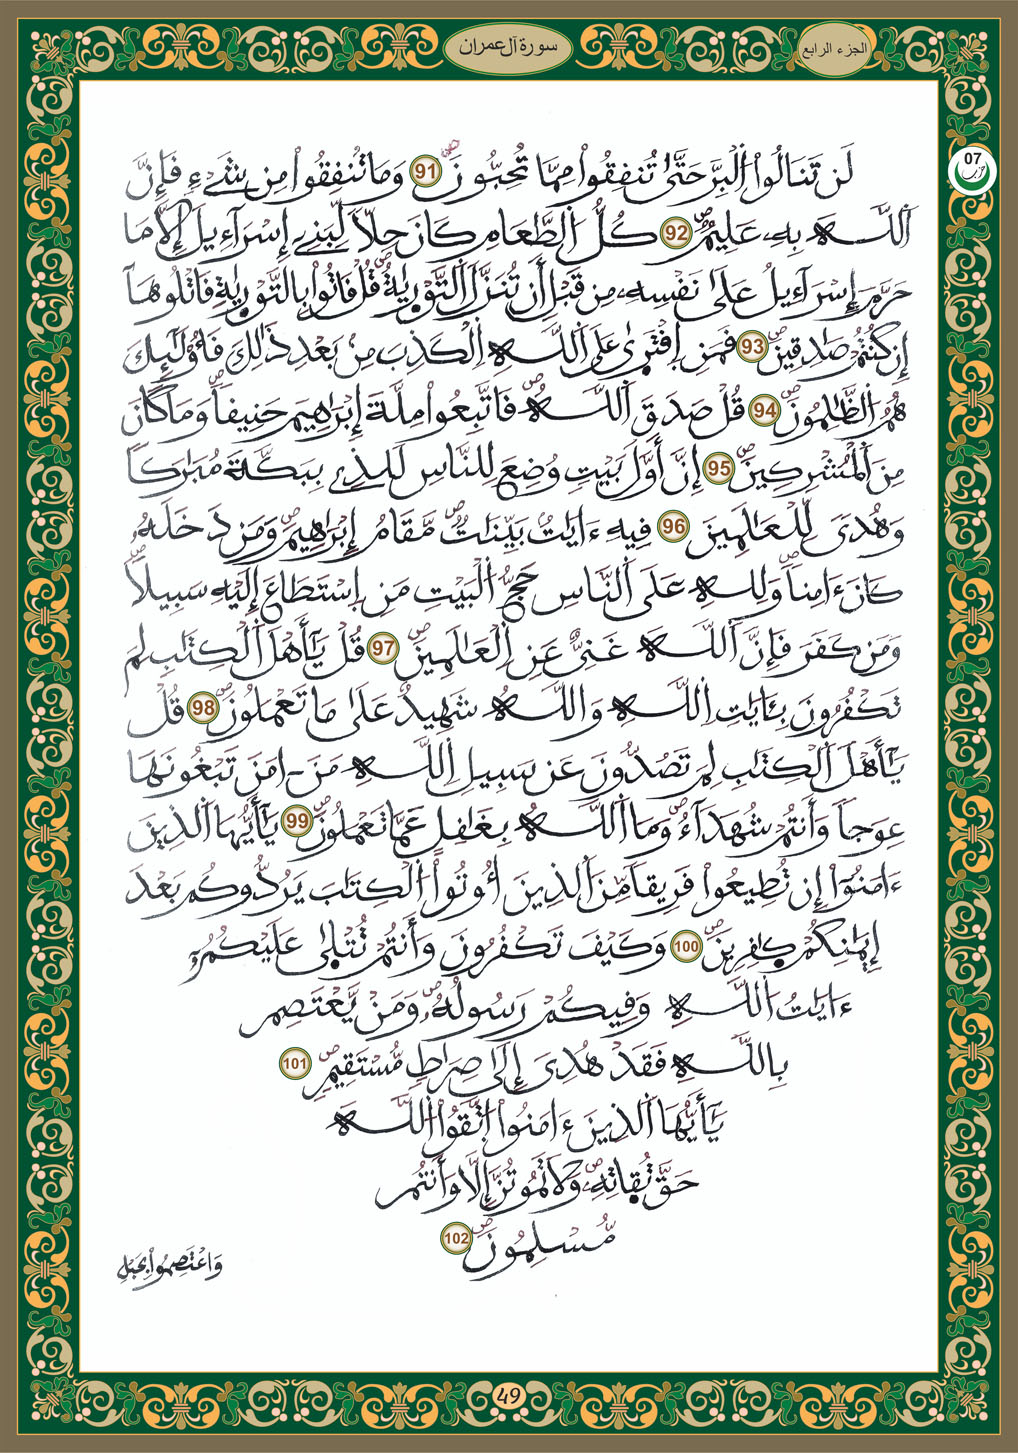 سورة آل عمران
الجزء الرابع
07
حزب
لَن تَنَالُوا۟ اُ۬لْبِرَّ حَتَّىٰ تُنفِقُوا۟ مِمَّا تُحِبُّونَ 91 وَمَا تُنفِقُوا۟ مِن شَےْءٖ فَإِنَّ
اَ۬للَّهَ بِهِۦ عَلِيمٞ 92 كُلُّ اُ۬لطَّعَامِ كَانَ حِلّاٗ لِّبَنِےٓ إِسْرَآءِيلَ إِلَّا مَا
حَرَّمَ إِسْرَآءِيلُ عَلَىٰ نَفْسِهِۦ مِن قَبْلِ أَن تُنَزَّلَ اَ۬لتَّوْرَىٰةُ قُلْ فَاتُوا۟ بِالتَّوْرَىٰةِ فَاتْلُوهَآ
إِن كُنتُمْ صَٰدِقِينَ 93 فَمَنِ اِ۪فْتَرَىٰ عَلَى اَ۬للَّهِ اِ۬لْكَذِبَ مِنۢ بَعْدِ ذَٰلِكَ فَأُو۟لَٰٓئِكَ
هُمُ اُ۬لظَّٰلِمُونَ 94 قُلْ صَدَقَ اَ۬للَّهُ فَاتَّبِعُوا۟ مِلَّةَ إِبْرَٰهِيمَ حَنِيفاٗ وَمَا كَانَ
مِنَ اَ۬لْمُشْرِكِينَ 95 إِنَّ أَوَّلَ بَيْتٖ وُضِعَ لِلنَّاسِ لَلذِے بِبَكَّةَ مُبَٰرَكاٗ
وَهُدىٗ لِّلْعَٰلَمِينَ 96 فِيهِ ءَايَٰتُۢ بَيِّنَٰتٞ مَّقَامُ إِبْرَٰهِيمَ وَمَن دَخَلَهُۥ
كَانَ ءَامِناٗ وَلِلهِ عَلَى اَ۬لنَّاسِ حَجُّ اُ۬لْبَيْتِ مَنِ اِ۪سْتَطَاعَ إِلَيْهِ سَبِيلاٗ
وَمَن كَفَرَ فَإِنَّ اَ۬للَّهَ غَنِيٌّ عَنِ اِ۬لْعَٰلَمِينَ 97 قُلْ يَٰٓأَهْلَ اَ۬لْكِتَٰبِ لِمَ
تَكْفُرُونَ بِـَٔايَٰتِ اِ۬للَّهِ وَاللَّهُ شَهِيدٌ عَلَىٰ مَا تَعْمَلُونَ 98 قُلْ
يَٰٓأَهْلَ اَ۬لْكِتَٰبِ لِمَ تَصُدُّونَ عَن سَبِيلِ اِ۬للَّهِ مَنَ اٰمَنَ تَبْغُونَهَا
عِوَجاٗ وَأَنتُمْ شُهَدَآءُ وَمَا اَ۬للَّهُ بِغَٰفِلٍ عَمَّا تَعْمَلُونَ 99 يَٰٓأَيُّهَا اَ۬لذِينَ
ءَامَنُوٓا۟ إِن تُطِيعُوا۟ فَرِيقاٗ مِّنَ اَ۬لذِينَ أُوتُوا۟ اُ۬لْكِتَٰبَ يَرُدُّوكُم بَعْدَ
إِيمَٰنِكُمْ كَٰفِرِينَ 100 وَكَيْفَ تَكْفُرُونَ وَأَنتُمْ تُتْلَىٰ عَلَيْكُمُۥٓ
ءَايَٰتُ اُ۬للَّهِ وَفِيكُمْ رَسُولُهُۥ وَمَنْ يَّعْتَصِم
بِاللَّهِ فَقَدْ هُدِىَ إِلَىٰ صِرَٰطٖ مُّسْتَقِيمٖ 101
يَٰٓأَيُّهَا اَ۬لذِينَ ءَامَنُوا۟ اُ۪تَّقُوا۟ اُ۬للَّهَ
حَقَّ تُقَاتِهِۦ وَلَا تَمُوتُنَّ إِلَّا وَأَنتُم
مُّسْلِمُونَ 102
وَاعْتَصِمُوا۟ بِحَبْلِ
49